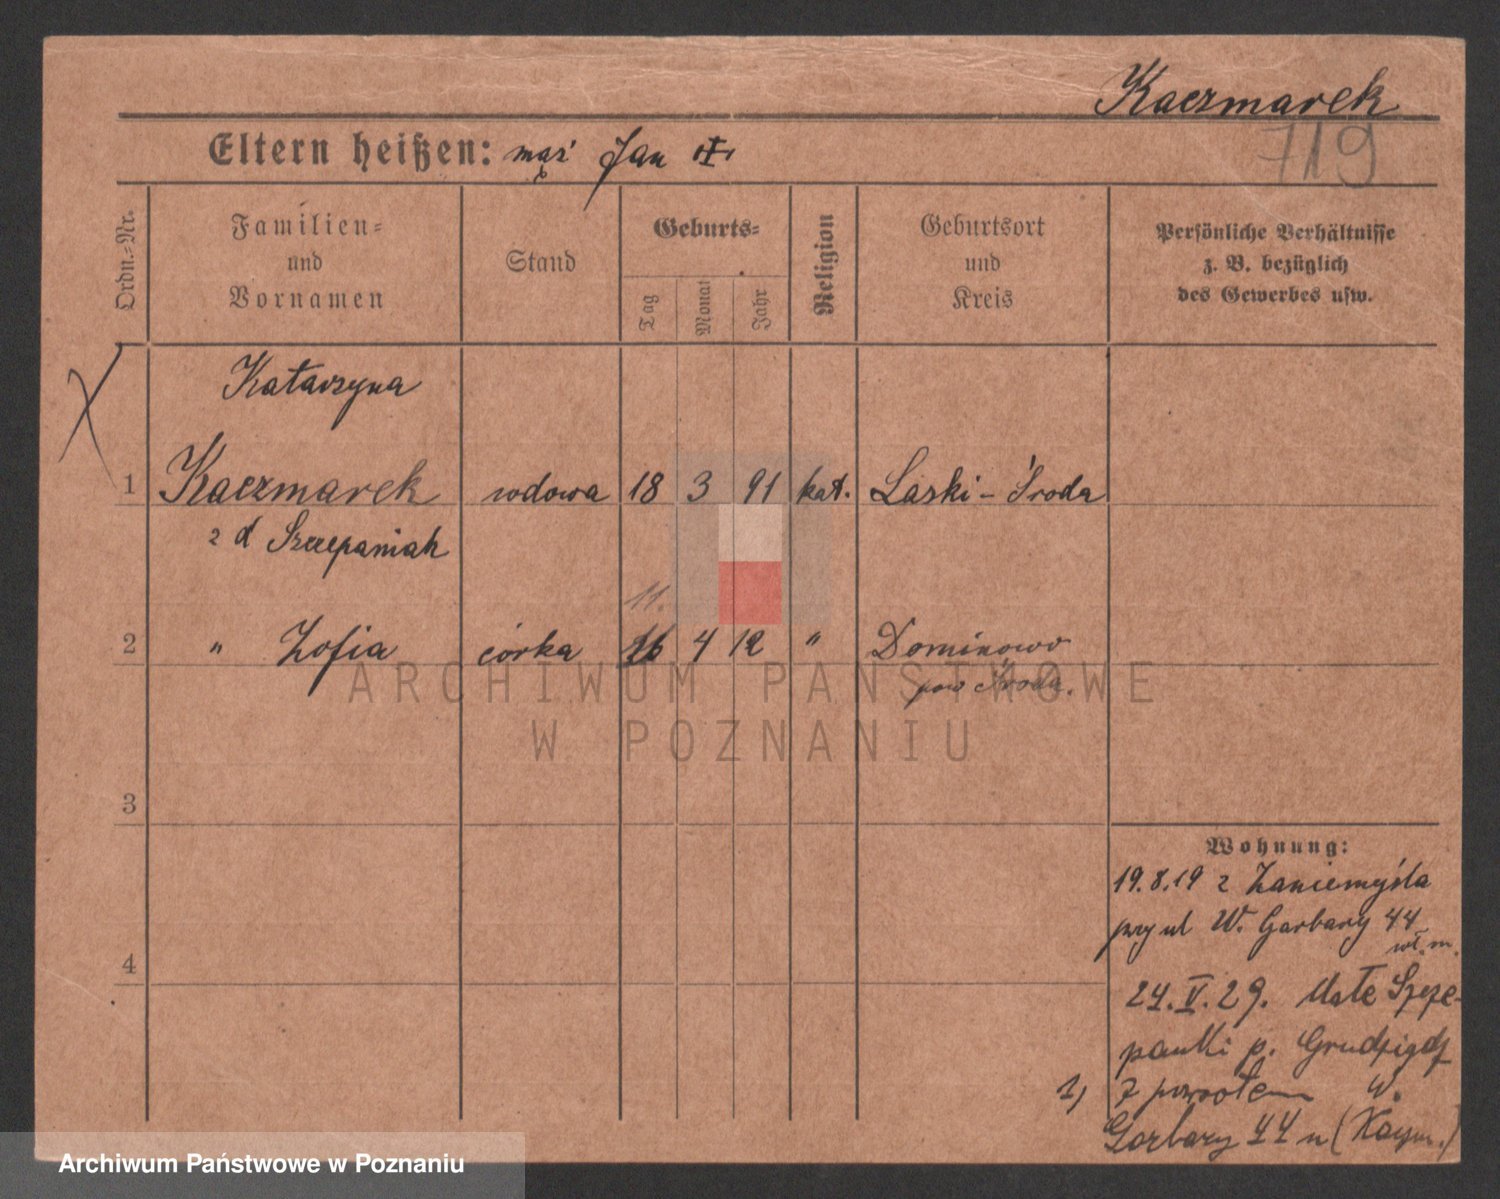 Kaczmarek
719
Eltern heißen: mąż Jan
Ordn.=Nr.
Familien=
und
Vornamen
Stand
Geburts=
Tag
Monat
Jahr
Religion
Geburtsort
und
Kreis
Persönliche Verhältnisse
z. B. bezüglich
des Gewerbes usw.
Katarzyna
1 Kaczmarek wdowa 18 3 91 kat. Laski - Środa
z d Szczepaniak
11.
2 " Zofia córka 16 4 12 " Dominowo
pow Środa.
3
4
Wohnung:
19.8.19 z Zaniemyśla
przy ul W. Garbary 44
wł. m.
24.V.29. Małe Szcze-
panki p. Grudziądz
1) z powrotem W.
Garbary 44 u (Kaczm.)
ARCHIWUM PAŃSTWOWE
W POZNANIU
Archiwum Państwowe w Poznaniu